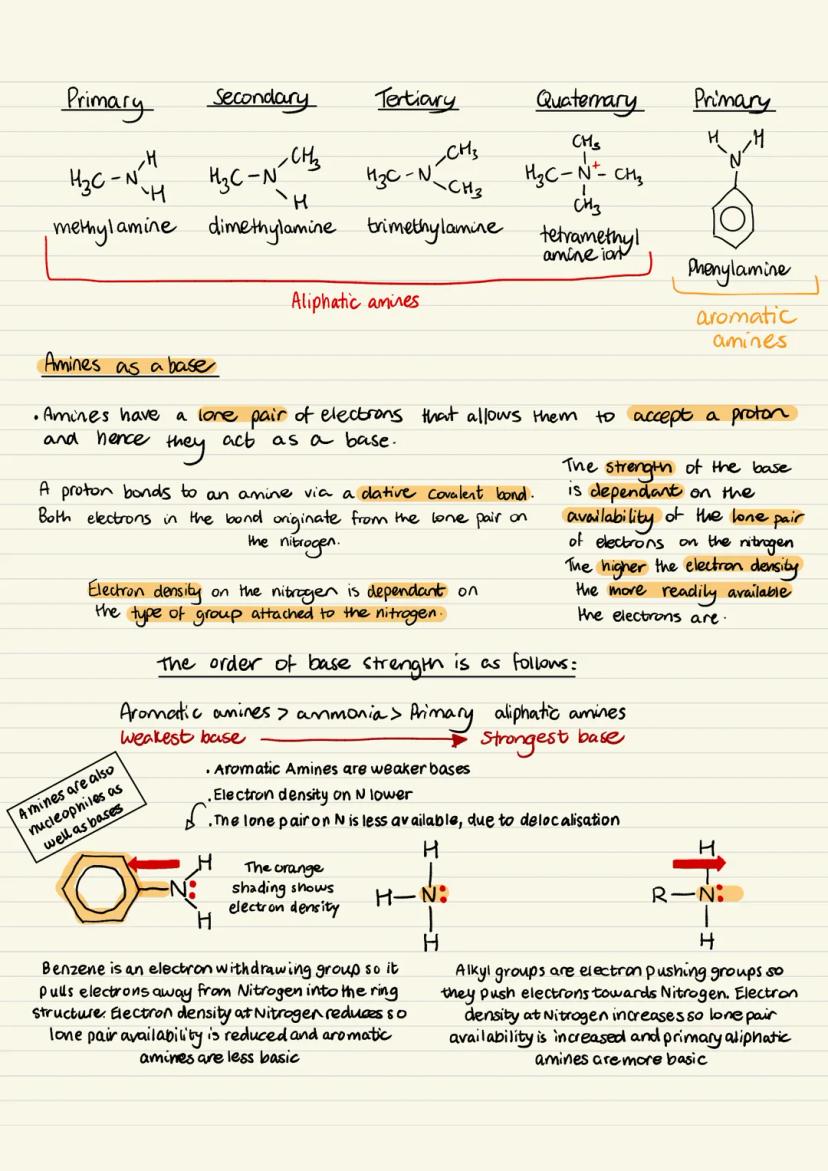 Primary Secondary Tertiary Quaternary Primary
H₃C-N H H
methylamine
H₃C-N CH₃ H
dimethylamine
H₃C-N CH₃ CH₃
trimethylamine
CH₃
H₃C-N⁺-CH₃
CH₃
tetramethyl
amine ion
H H
N
Phenylamine
Aliphatic amines
aromatic
amines
Amines as a base
• Amines have a lone pair of electrons that allows them to accept a proton
and hence they act as a base.
A proton bonds to an amine via a dative covalent bond.
Both electrons in the bond originate from the lone pair on
the nitrogen.
Electron density on the nitrogen is dependant on
the type of group attached to the nitrogen.
The strength of the base
is dependant on the
availability of the lone pair
of electrons on the nitrogen
The higher the electron density
the more readily available
the electrons are.
The order of base strength is as follows:
Aromatic amines > ammonia > Primary aliphatic amines
weakest base → strongest base
Amines are also
nucleophiles as
well as bases
. Aromatic Amines are weaker bases
. Electron density on N lower
. The lone pair on N is less available, due to delocalisation
H
N:
H
The orange
shading shows
electron density
H
H-N:
H
H
R-N:
H
Benzene is an electron withdrawing group so it
pulls electrons away from Nitrogen into the ring
structure. Electron density at Nitrogen reduces so
lone pair availability is reduced and aromatic
amines are less basic
Alkyl groups are electron pushing groups so
they push electrons towards Nitrogen. Electron
density at Nitrogen increases so lone pair
availability is increased and primary aliphatic
amines are more basic